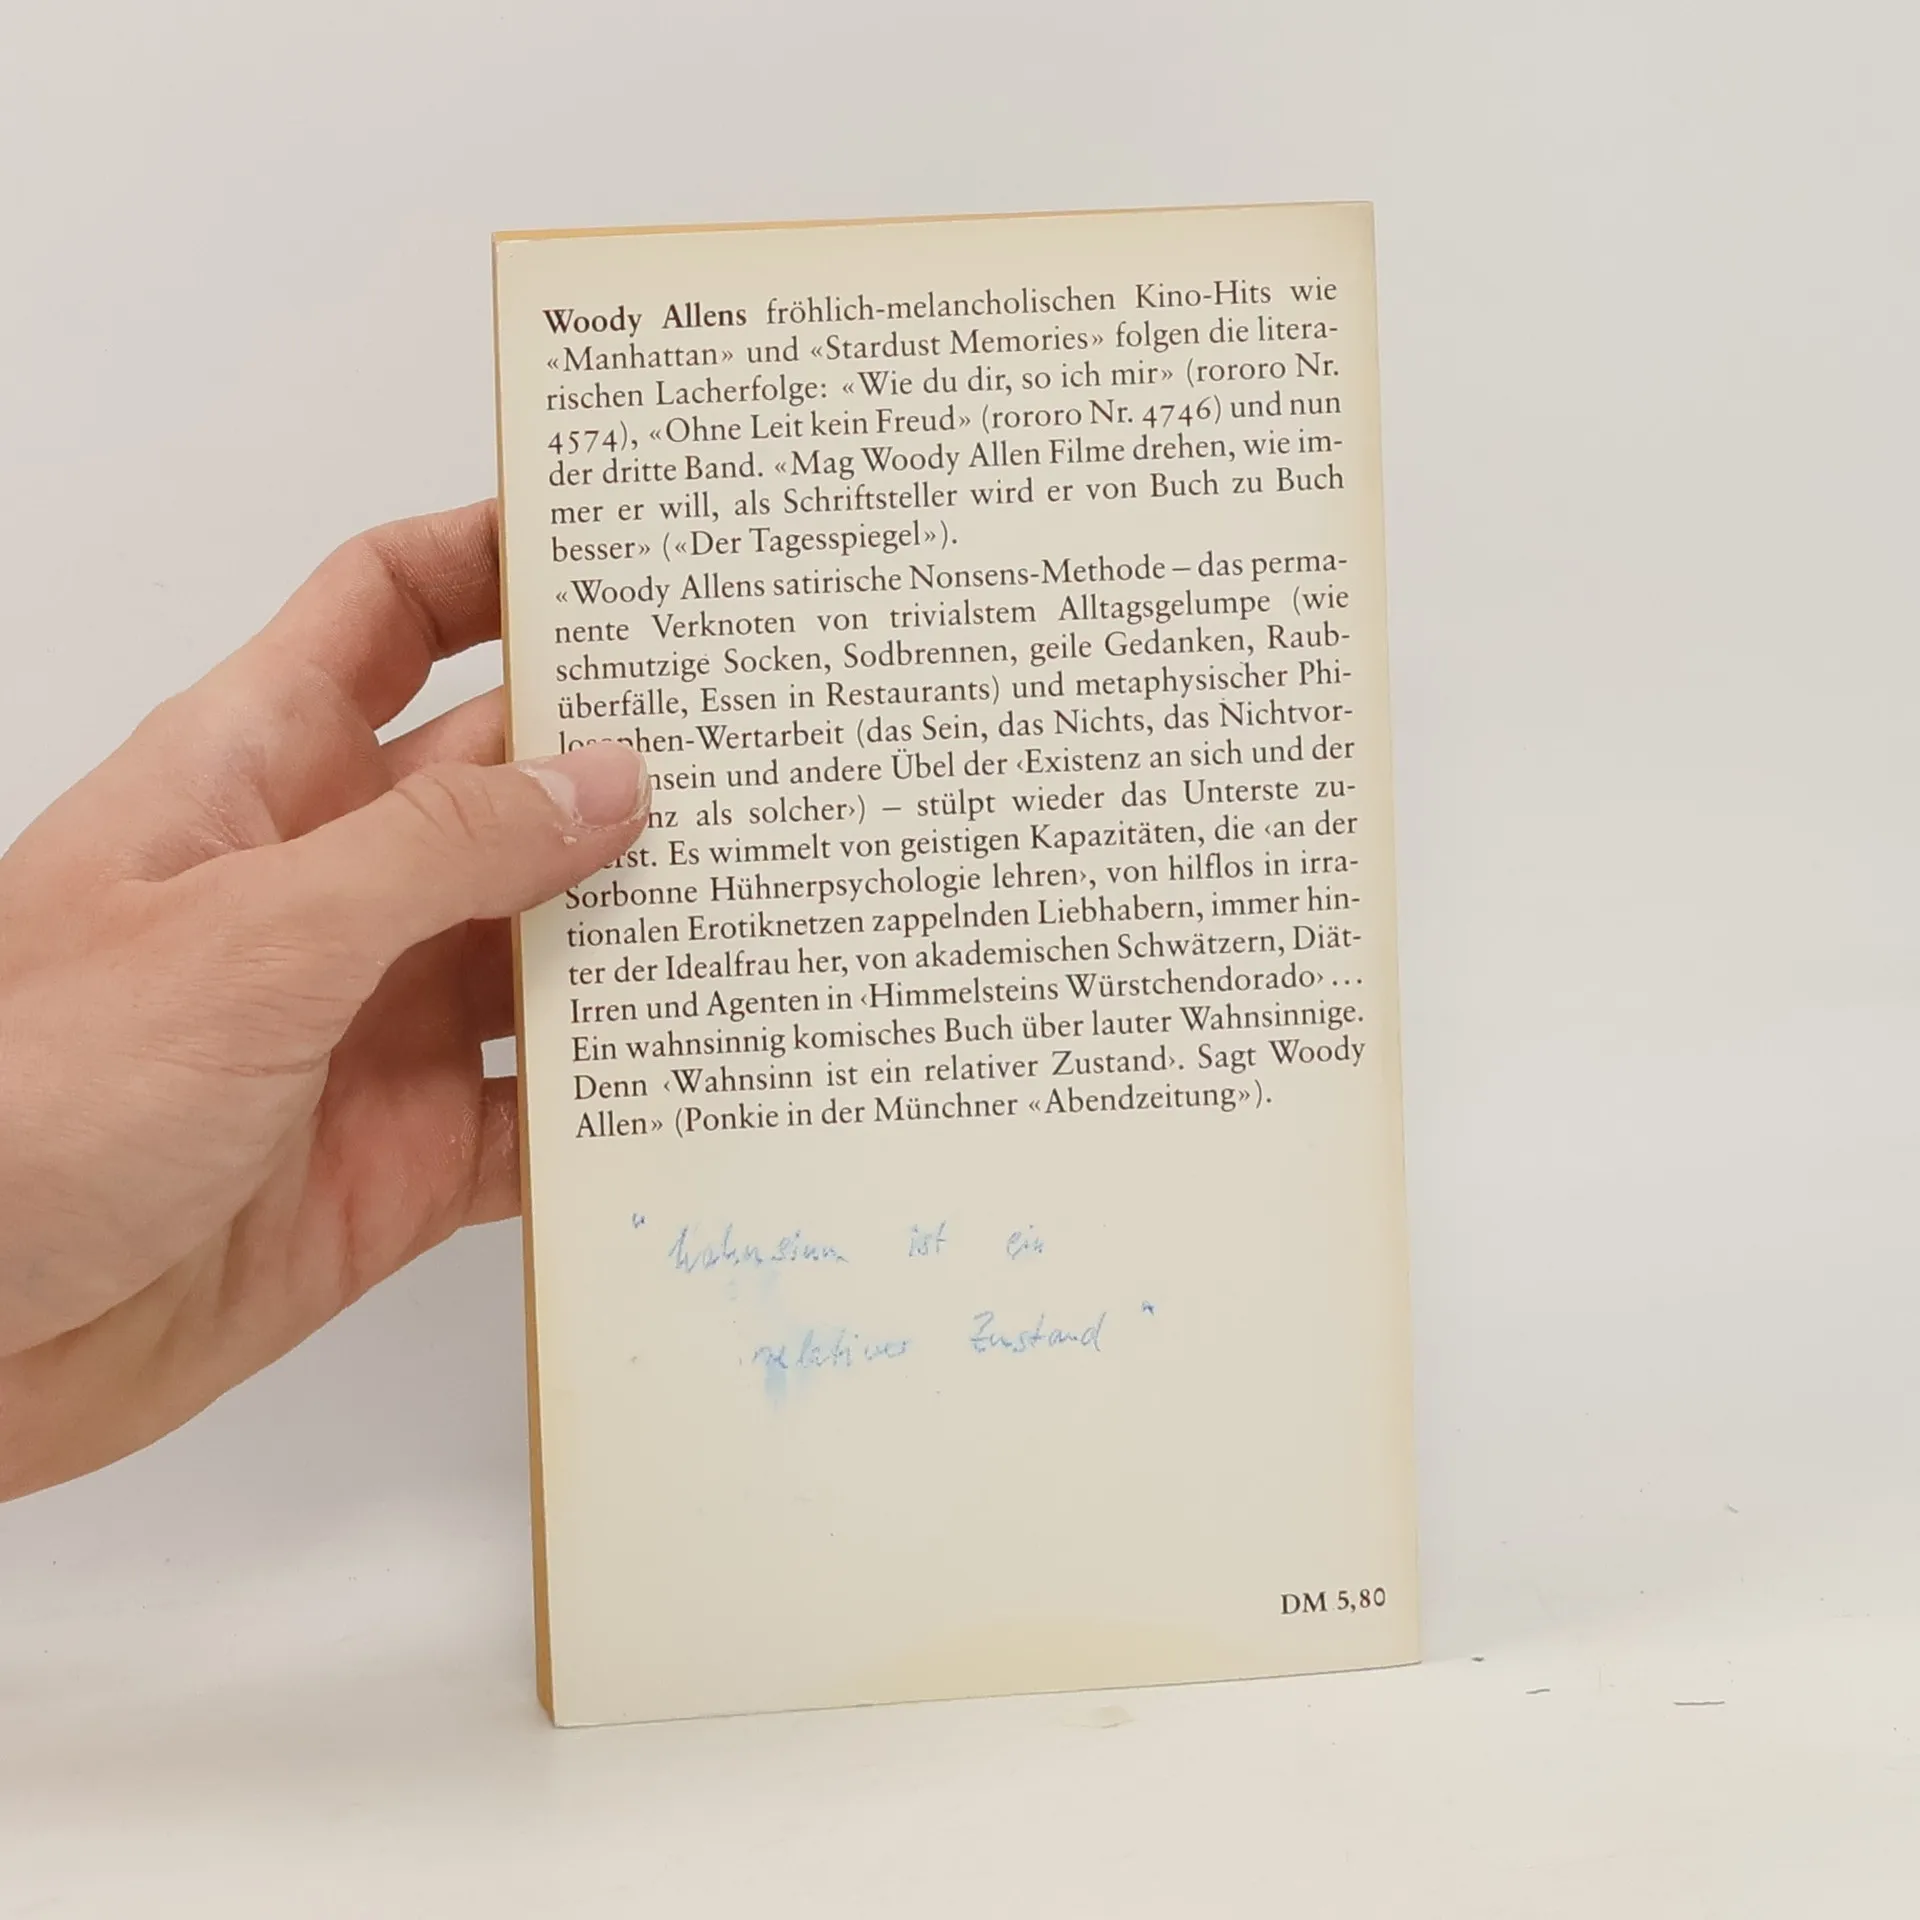 Woody Allens fröhlich-melancholischen Kino-Hits wie
«Manhattan» und «Stardust Memories» folgen die litera-
rischen Lacherfolge: «Wie du dir, so ich mir» (rororo Nr.
4574), «Ohne Leit kein Freud» (rororo Nr. 4746) und nun
der dritte Band. «Mag Woody Allen Filme drehen, wie im-
mer er will, als Schriftsteller wird er von Buch zu Buch
besser» («Der Tagesspiegel»).
«Woody Allens satirische Nonsens-Methode – das perma-
nente Verknoten von trivialstem Alltagsgelumpe (wie
schmutzige Socken, Sodbrennen, geile Gedanken, Raub-
überfälle, Essen in Restaurants) und metaphysischer Phi-
losophen-Wertarbeit (das Sein, das Nichts, das Nichtvor-
nsein und andere Übel der ‹Existenz an sich und der
nz als solcher›) – stülpt wieder das Unterste zu-
erst. Es wimmelt von geistigen Kapazitäten, die ‹an der
Sorbonne Hühnerpsychologie lehren›, von hilflos in irra-
tionalen Erotiknetzen zappelnden Liebhabern, immer hin-
ter der Idealfrau her, von akademischen Schwätzern, Diät-
Irren und Agenten in ‹Himmelsteins Würstchendorado› ...
Ein wahnsinnig komisches Buch über lauter Wahnsinnige.
Denn ‹Wahnsinn ist ein relativer Zustand›. Sagt Woody
Allen» (Ponkie in der Münchner «Abendzeitung»).
"Wahnsinn ist ein
relativer Zustand"
DM 5,80